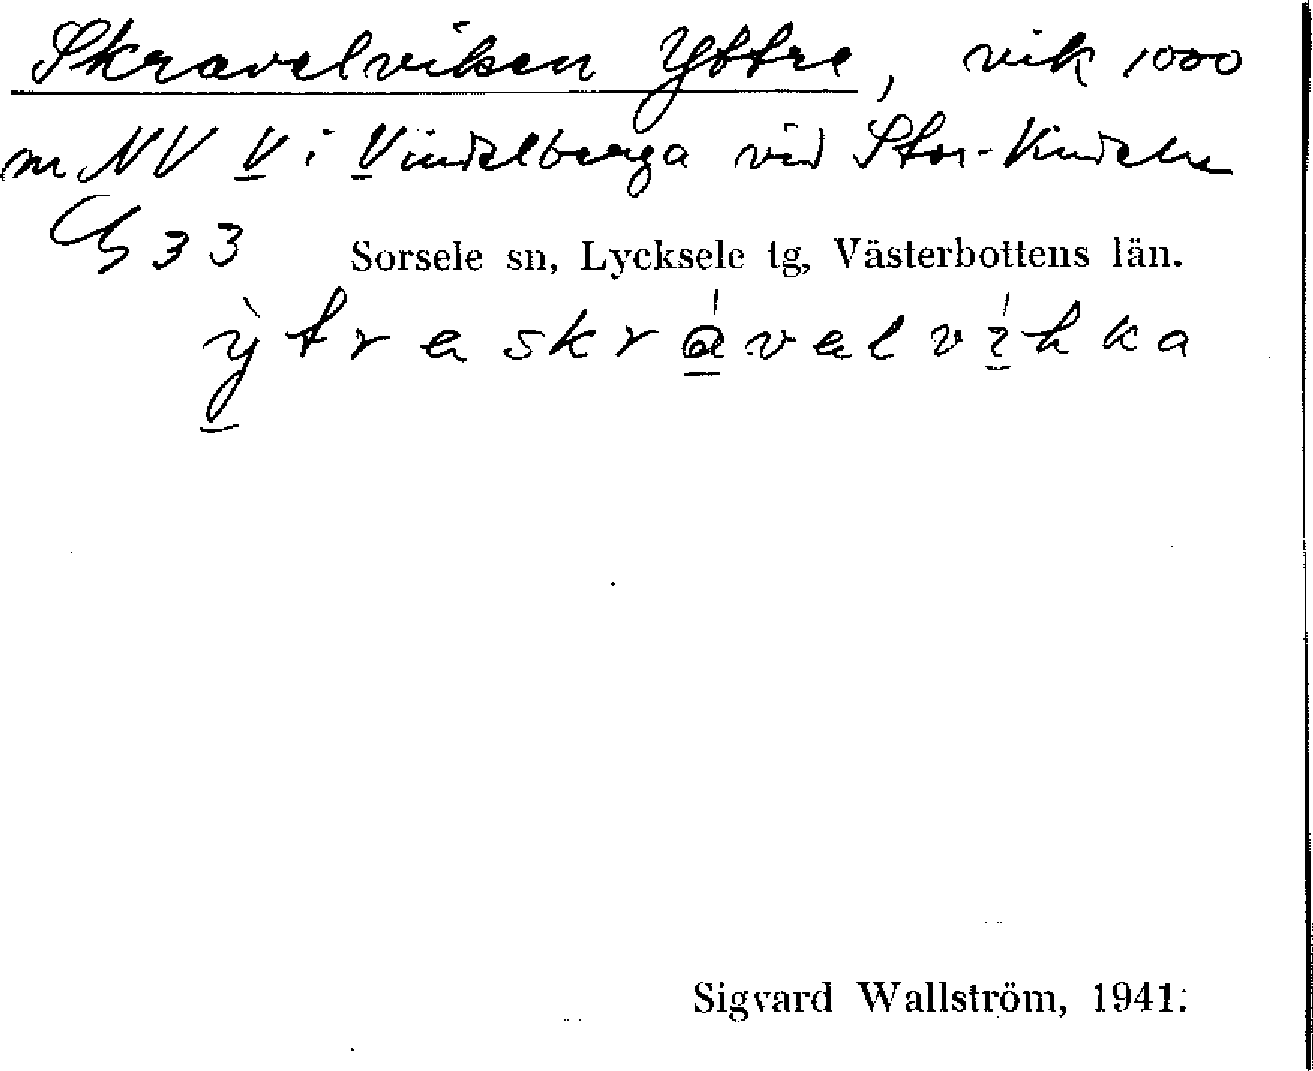 Skravelviken Yttre, vik 1000
m NV V i Vindelberga vid Stor-Vindeln
G 33 Sorsele sn, Lycksele tg, Västerbottens län.
ỳtreskrávelvíkka
Sigvard Wallström, 1941.